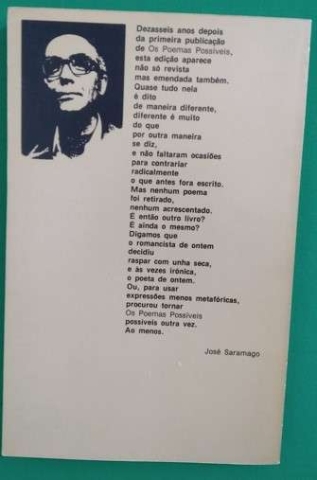 Dezasseis anos depois
da primeira publicação
de Os Poemas Possíveis,
esta edição aparece
não só revista
mas emendada também.
Quase tudo nela
é dito
de maneira diferente,
diferente é muito
do que
por outra maneira
se diz,
e não faltaram ocasiões
para contrariar
radicalmente
o que antes fora escrito.
Mas nenhum poema
foi retirado,
nenhum acrescentado.
É então outro livro?
É ainda o mesmo?
Digamos que
o romancista de ontem
decidiu
raspar com unha seca,
e às vezes irónica,
o poeta de ontem.
Ou, para usar
expressões menos metafóricas,
procurou tornar
Os Poemas Possíveis
possíveis outra vez.
Ao menos.
José Saramago